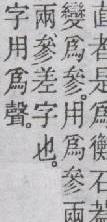 直者是爲衡石
變爲參。用爲參兩
兩參差字也。
字用爲聲。